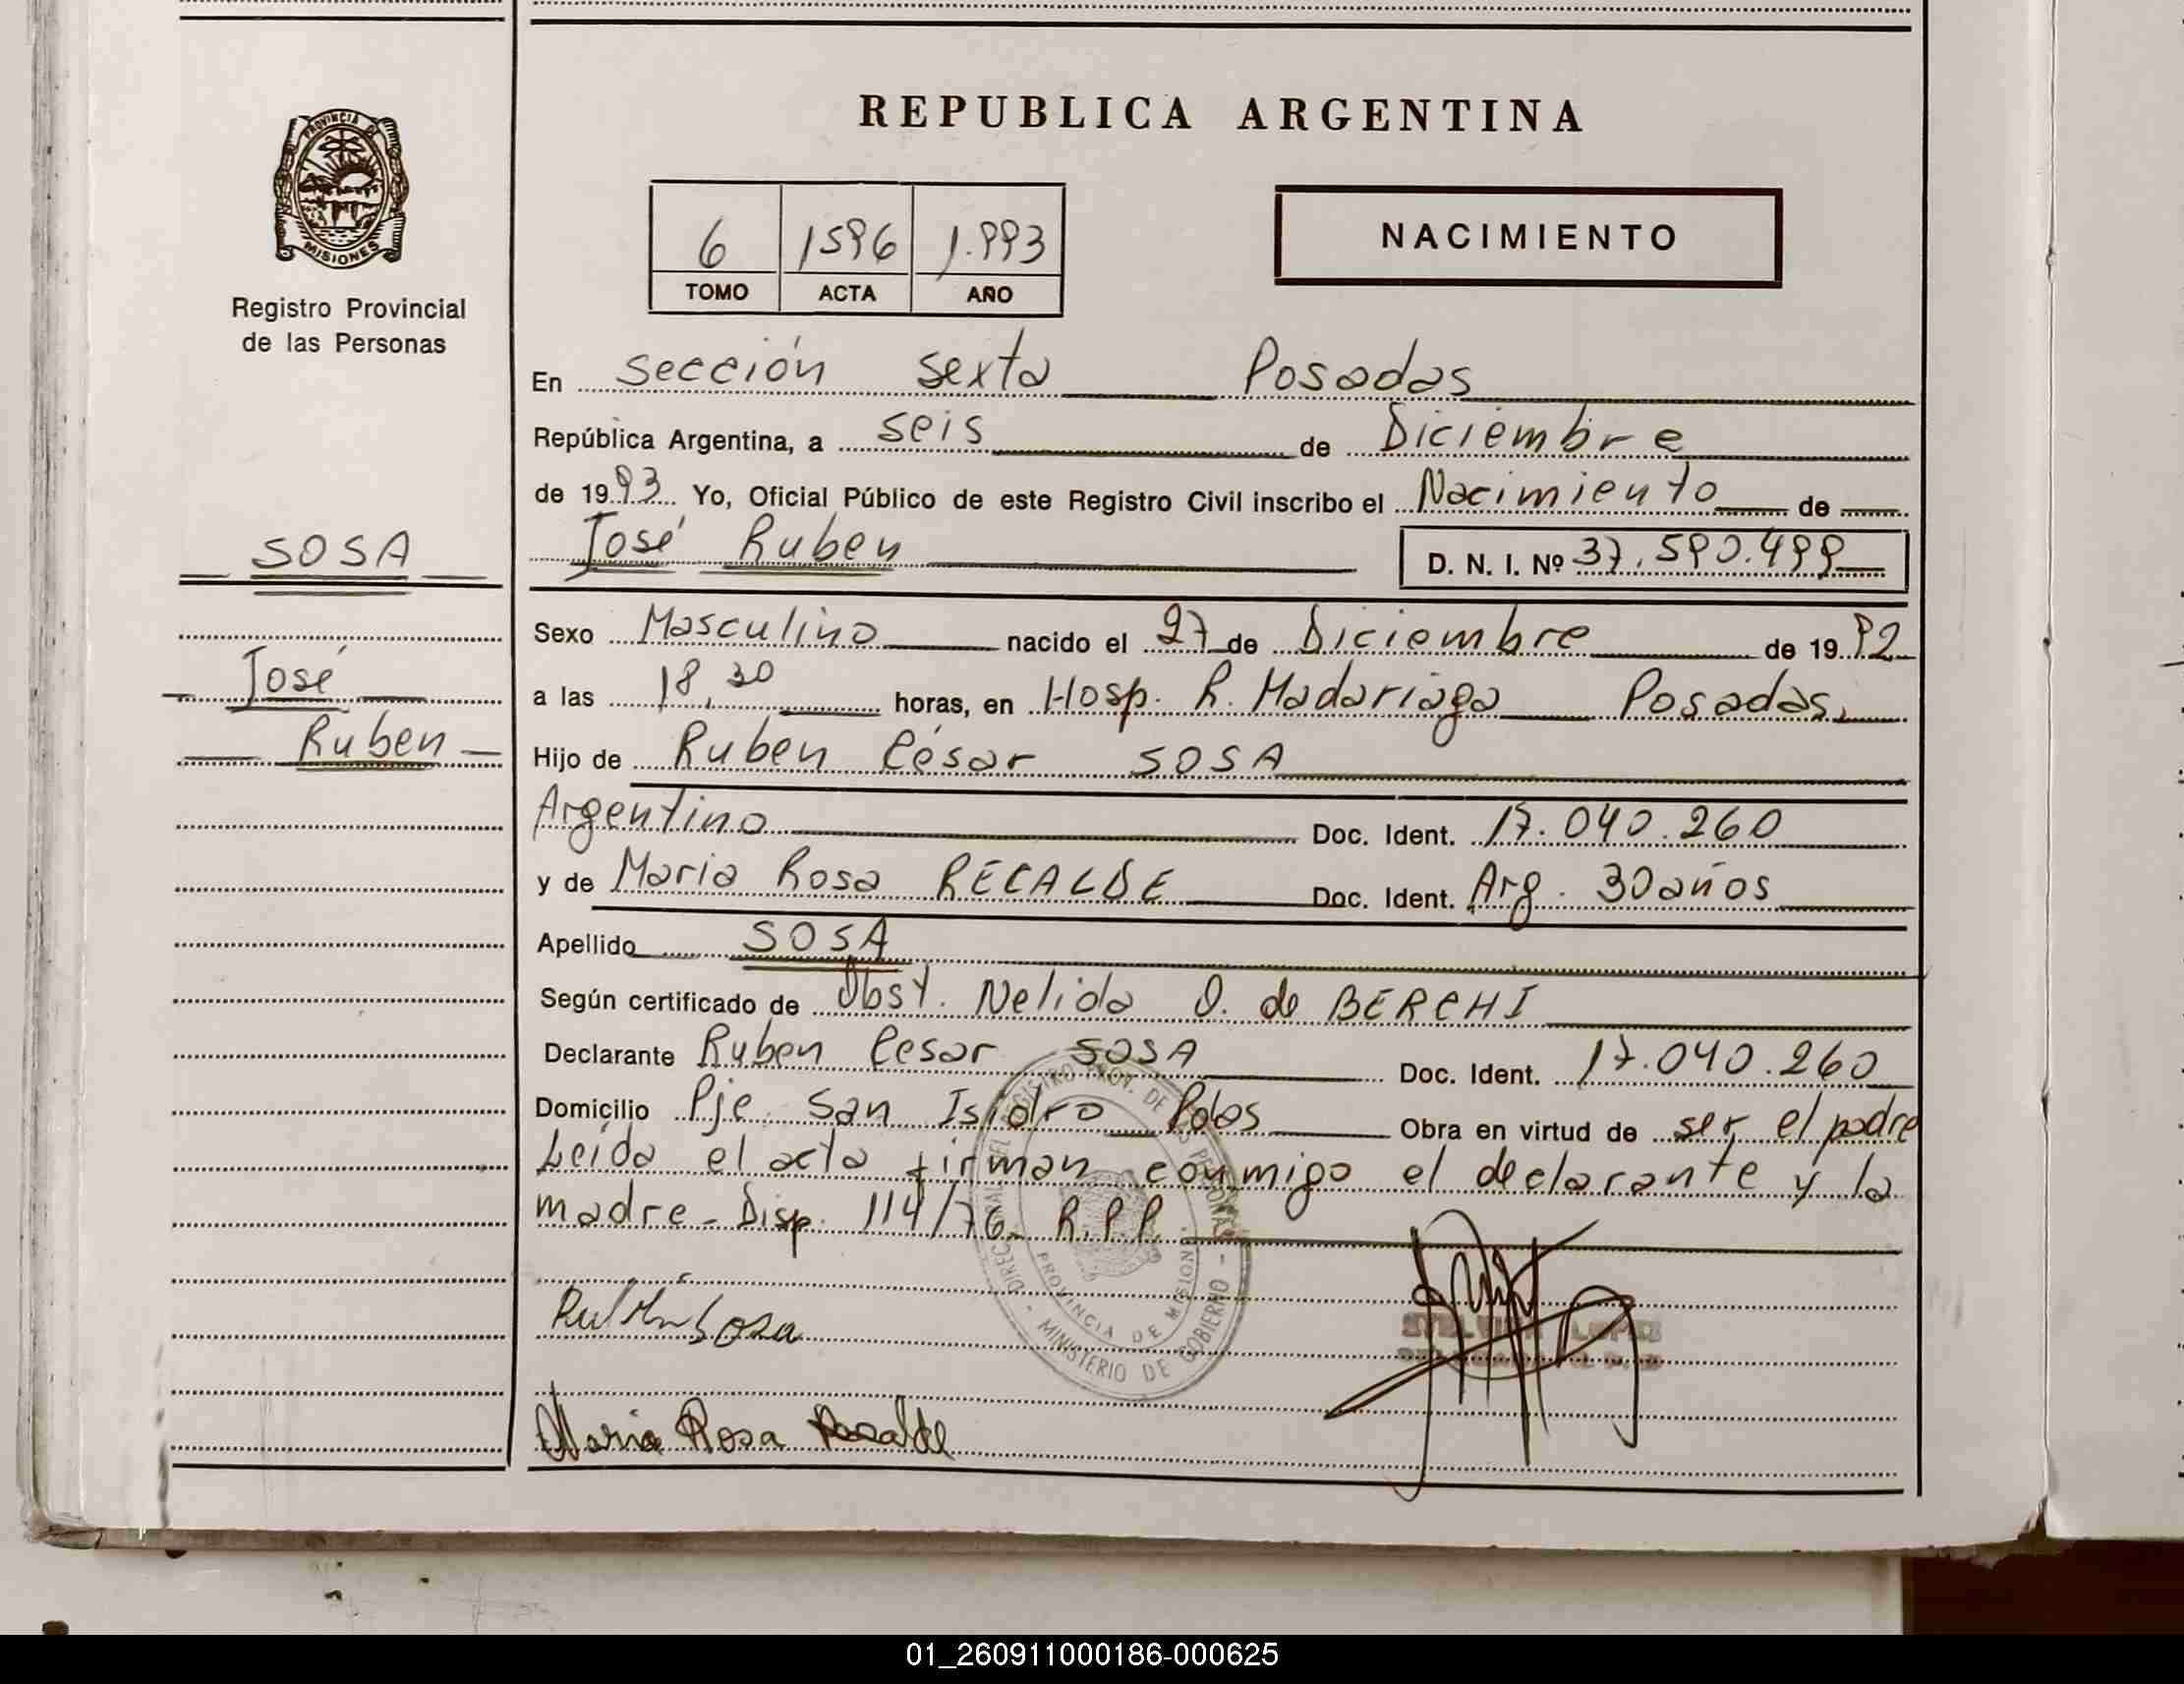 REPUBLICA ARGENTINA
PROVINCIA DE
MISIONES
Registro Provincial
de las Personas
6 1596 1.993
TOMO ACTA AÑO
NACIMIENTO
En sección sexta Posadas
República Argentina, a seis de Diciembre
de 1993 Yo, Oficial Público de este Registro Civil inscribo el Nacimiento de
José Ruben D. N. I. Nº 37.590.499
SOSA
José
Ruben
Sexo Masculino nacido el 27 de Diciembre de 1992
a las 18,30 horas, en Hosp. R. Madariaga Posadas,
Hijo de Ruben César SOSA
Argentino Doc. Ident. 17.040.260
y de Maria Rosa RECALDE Doc. Ident. Arg. 30 años
Apellido SOSA
Según certificado de Obst. Nelida O. de BERCHI
Declarante Ruben Cesar SOSA Doc. Ident. 17.040.260
Domicilio Pje. San Isidro Pdas Obra en virtud de ser el padre
Leida el acta firman conmigo el declarante y la
madre - Disp. 114/76 R.P.P.
PROVINCIA DE MISIONES
MINISTERIO DE GOBIERNO
Sosa
LOPEZ
Maria Rosa Recalde
01_260911000186-000625